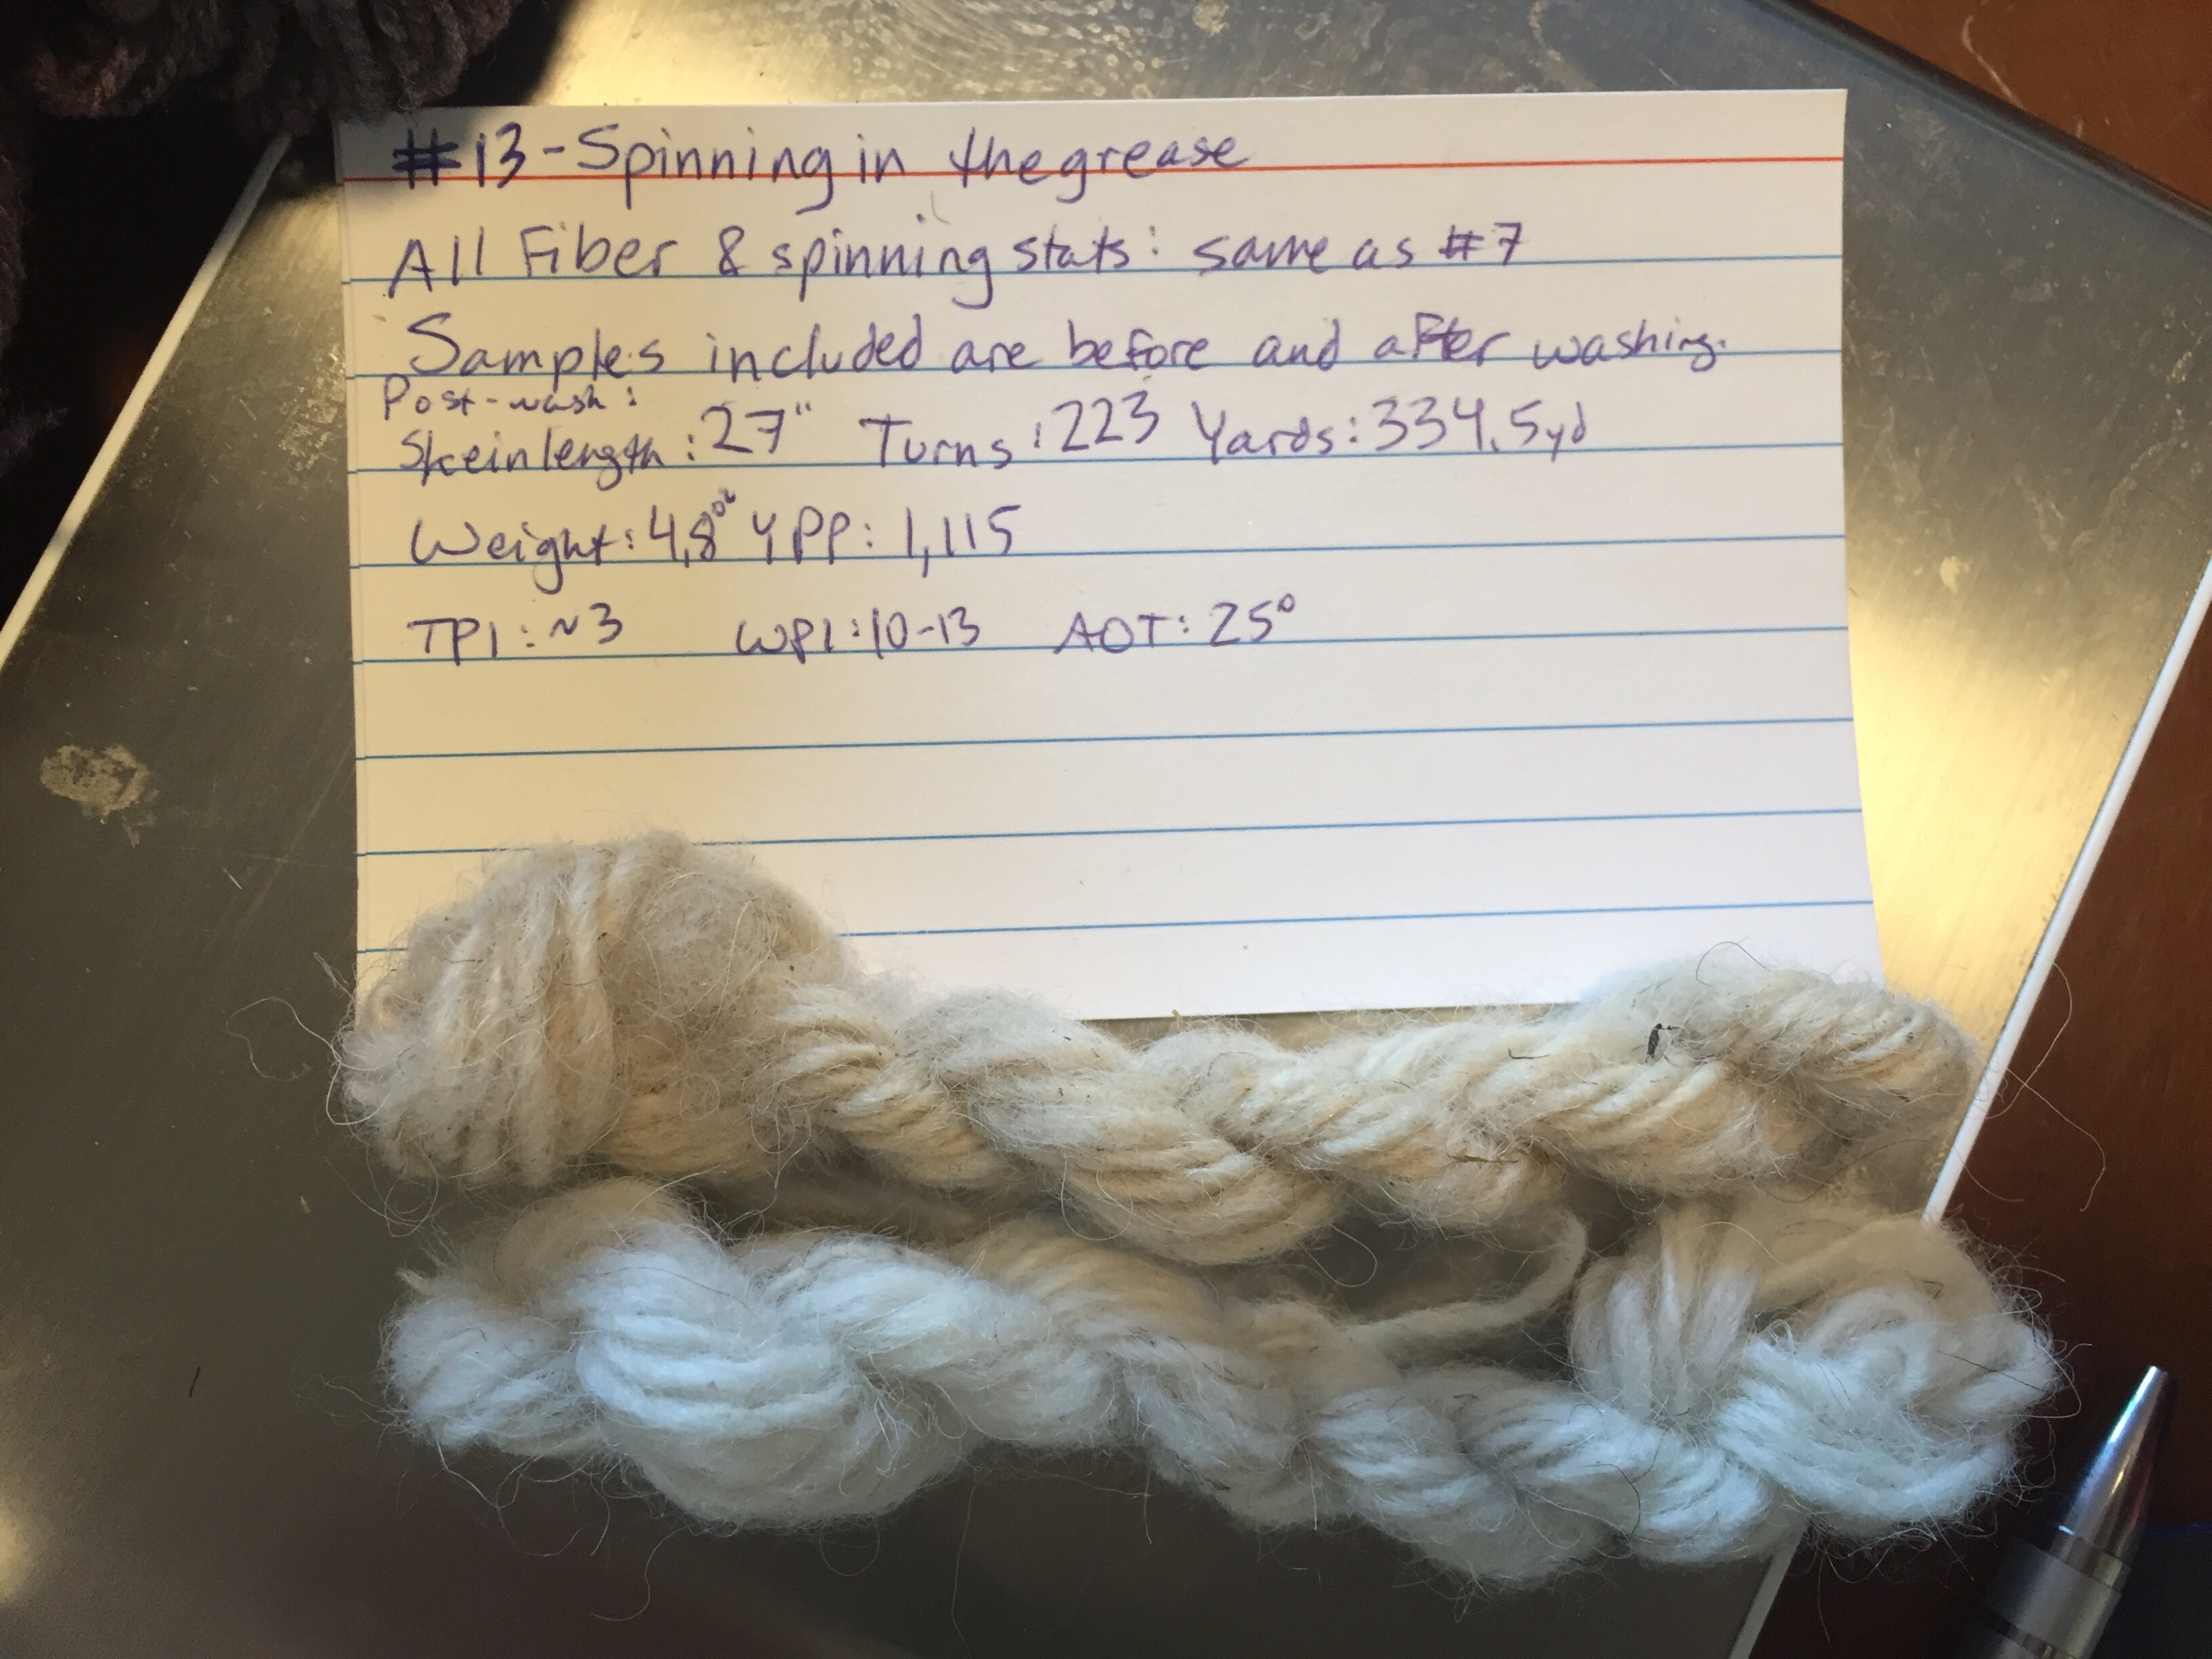 #13 - Spinning in the grease
All Fiber & spinning stats: same as #7
Samples included are before and after washing.
Post-wash:
Skein length: 27" Turns: 223 Yards: 334.5yd
Weight: 4.8oz YPP: 1,115
TPI: ~3 WPI: 10-13 AOT: 25°